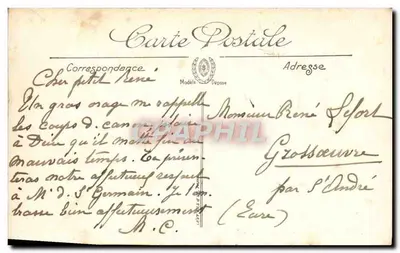 Carte Postale
Correspondance
Adresse
Modèle Déposé
Cher petit René
Un gros orage me rappelle
les coups d. canon. plaise
à Dieu qu'il mette fin au
mauvais temps. Tu présen
teras notre affectueux respect
à Mr d. St Germain. Je t'em
brasse bien affectueusement
M. C.
Monsieur René Lefort
Grossœuvre
par St André
(Eure)